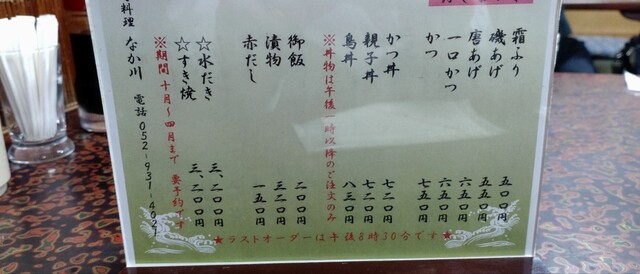 霜ふり 五〇〇円
磯あげ 五五〇円
唐あげ 六五〇円
一口かつ 六五〇円
かつ 七五〇円
かつ丼 七二〇円
親子丼 七二〇円
鳥丼 八三〇円
※丼物は午後一時以降のご注文のみ
御飯 二〇〇円
漬物 三二〇円
赤だし 一五〇円
☆水だき 三、二〇〇円
☆すき焼 三、二〇〇円
※期間 十月〜四月まで 要予約です
料理 なか川 電話 052-931-
★ラストオーダーは午後8時30分です★